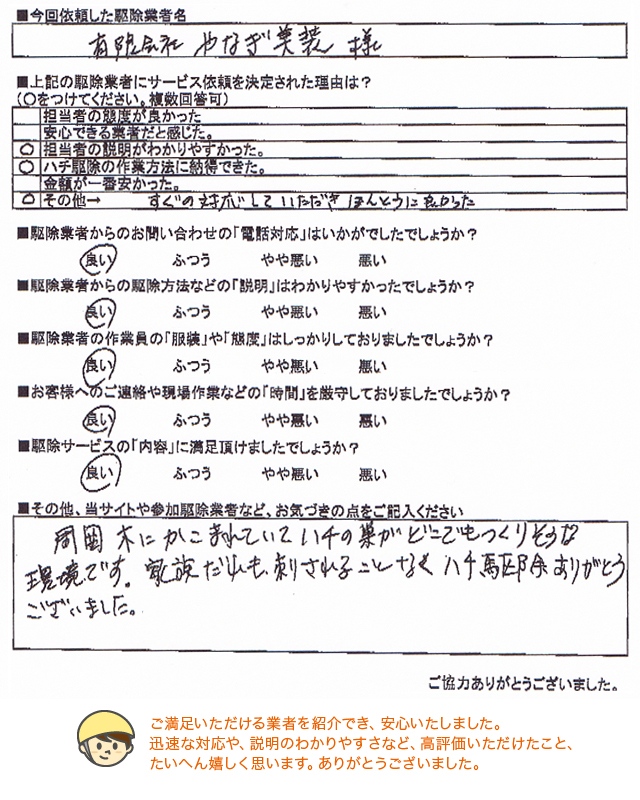 ■今回依頼した駆除業者名
有限会社 やなぎ美装 様
■上記の駆除業者にサービス依頼を決定された理由は?
(○をつけてください。複数回答可)
担当者の態度が良かった
安心できる業者だと感じた。
○ 担当者の説明がわかりやすかった。
○ ハチ駆除の作業方法に納得できた。
金額が一番安かった。
○ その他→ すぐの対応していただき ほんとうに良かった
■駆除業者からのお問い合わせの「電話対応」はいかがでしたでしょうか?
良い ふつう やや悪い 悪い
■駆除業者からの駆除方法などの「説明」はわかりやすかったでしょうか?
良い ふつう やや悪い 悪い
■駆除業者の作業員の「服装」や「態度」はしっかりしておりましたでしょうか?
良い ふつう やや悪い 悪い
■お客様へのご連絡や現場作業などの「時間」を厳守しておりましたでしょうか?
良い ふつう やや悪い 悪い
■駆除サービスの「内容」に満足頂けましたでしょうか?
良い ふつう やや悪い 悪い
■その他、当サイトや参加駆除業者など、お気づきの点をご記入ください
周囲 木にかこまれていてハチの巣がどこでもつくりそうな
環境です。家族だれも刺されることなくハチ駆除ありがとう
ございました。
ご協力ありがとうございました。
ご満足いただける業者を紹介でき、安心いたしました。
迅速な対応や、説明のわかりやすさなど、高評価いただけたこと、
たいへん嬉しく思います。ありがとうございました。